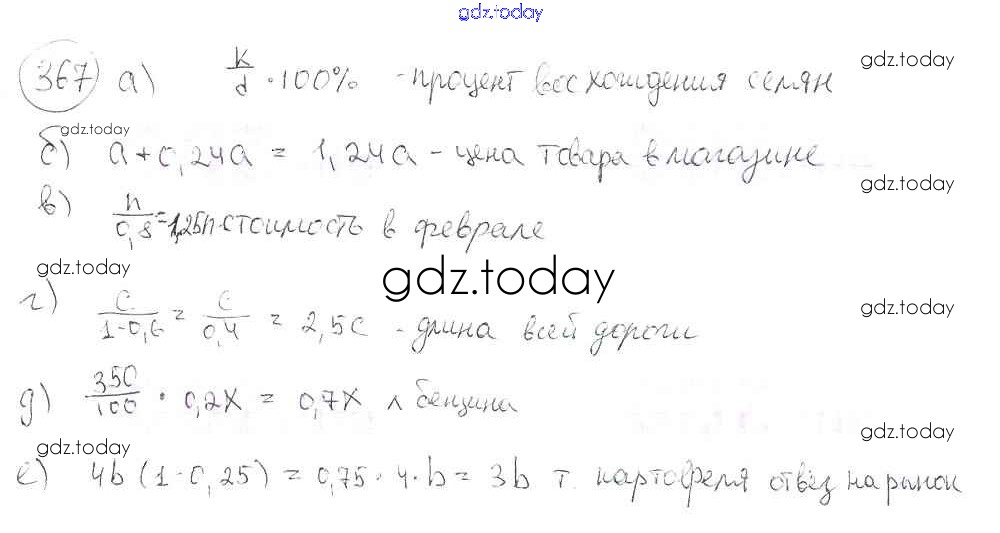 gdz.today
367 а) k/d · 100% - процент всхождения семян
gdz.today
gdz.today
б) a + 0,24a = 1,24a - цена товара в магазине
gdz.today
в) n/0,8 = 1,25n - стоимость в феврале
gdz.today
gdz.today
г) c/1-0,6 = c/0,4 = 2,5c - длина всей дороги
gdz.today
д) 350/100 · 0,2x = 0,7x л бензина
gdz.today
gdz.today
е) 4b (1-0,25) = 0,75 · 4 · b = 3b т. картофеля отвёз на рынок